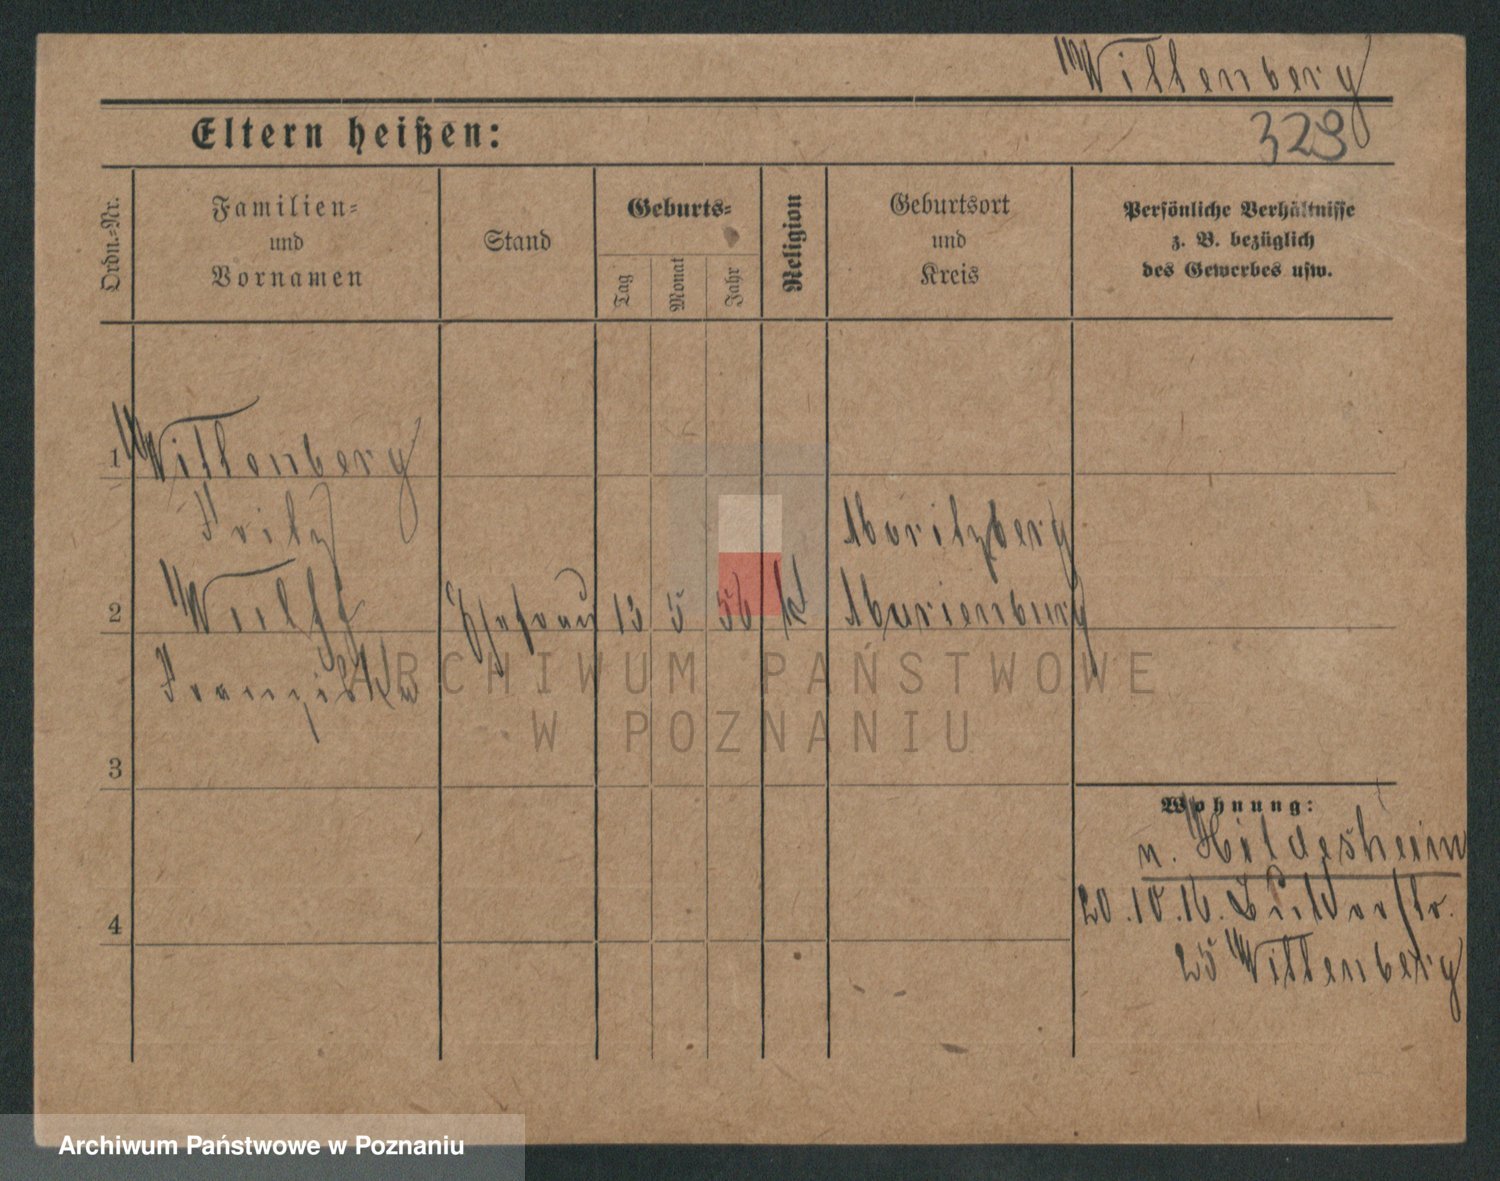 Wittenberg
Eltern heißen:
329
Ordn.-Nr.
Familien-
und
Vornamen
Stand
Geburts-
Tag
Monat
Jahr
Religion
Geburtsort
und
Kreis
Persönliche Verhältnisse
z. B. bezüglich
des Gewerbes usw.
1 Wittenberg
Fritz
Moritzberg
2 Wulff Ehefrau 13 5 56 k Marienburg
Franziska
3
Wohnung:
n. Hildesheim
20.10.16.
4
25 Wittenberg
ARCHIWUM PAŃSTWOWE
W POZNANIU
Archiwum Państwowe w Poznaniu